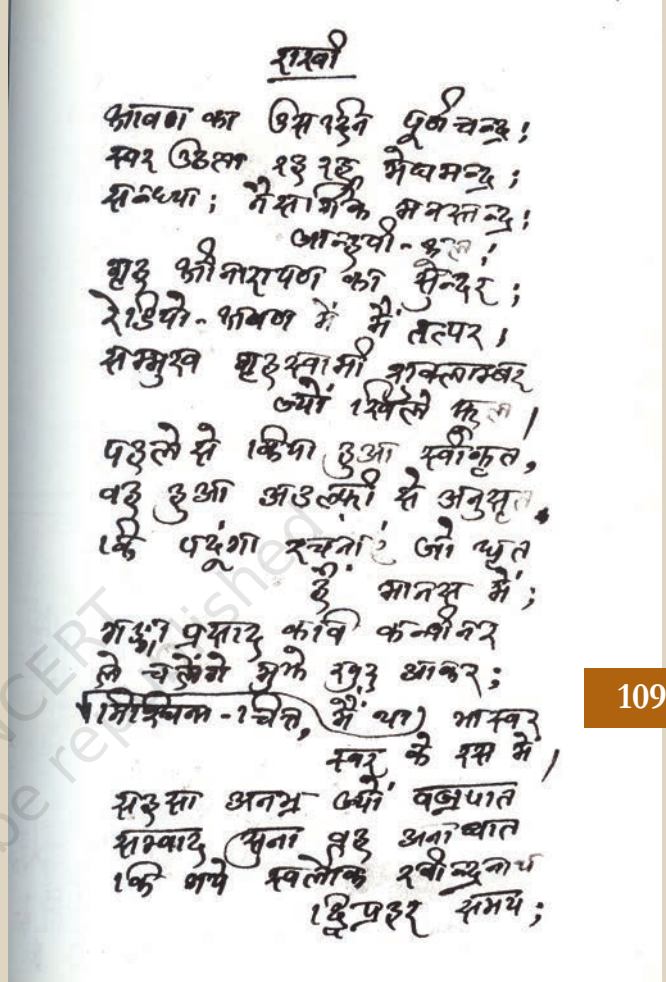 राखी
श्रावण का उस दिन पूर्ण चन्द्र;
स्वर उठता रह रह मेघमन्द्र;
सन्ध्या; नैसर्गिक मनस्तन्द्र;
जान्हवी-कूल;
गृह श्रीनारायण का सुन्दर;
रेडियो-श्रवण में मैं तत्पर,
सम्मुख गृहस्वामी शुक्लाम्बर
ज्यों खिले फूल।
पहले से किया हुआ स्वीकृत,
वह हुआ अडल्फी से अनुसृत,
कि पढूंगा रचनाएं जो घृत
हैं मानस में;
गङ्गा प्रसाद कवि कन्धीनर
ले चलेंगे मुझे खुद आकर;
निश्चिन्त-चित्त, मैं था भास्वर
स्वर के रस में।
सहसा अनभ्र ज्यों वज्रपात
सम्वाद सुना वह
कि गये स्वर्लोक रवीन्द्रनाथ
द्विप्रहर समय;
109
NCERT
be republished